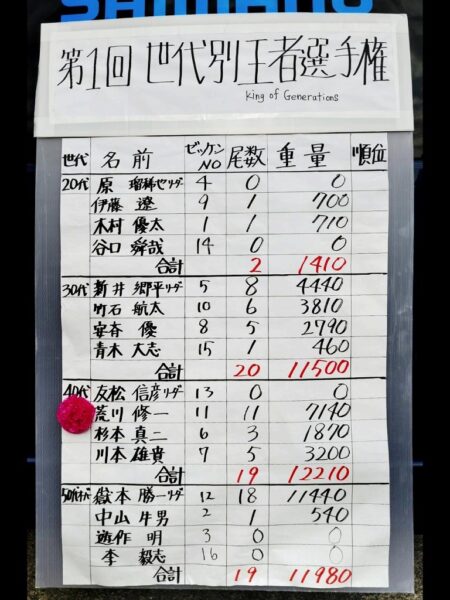 SHIMANO
第1回 世代別王者選手権
King of Generations
世代 名前 ゼッケンNO 尾数 重量 順位
20代 原 瑠稀也リーダー 4 0 0
伊藤 遼 9 1 700
木村 優太 1 1 710
谷口 舜哉 14 0 0
合計 2 1410
30代 新井 郷平リーダー 5 8 4440
竹石 航太 10 6 3810
安斉 優 8 5 2790
青木 大志 15 1 460
合計 20 11500
40代 友松 信彦リーダー 13 0 0
荒川 修一 11 11 7140
杉本 真二 6 3 1870
川本 雄貴 7 5 3200
合計 19 12210
50代オーバー 嶽本 勝一リーダー 12 18 11440
中山 牛男 2 1 540
遊作 明 3 0 0
李 毅志 16 0 0
合計 19 11980